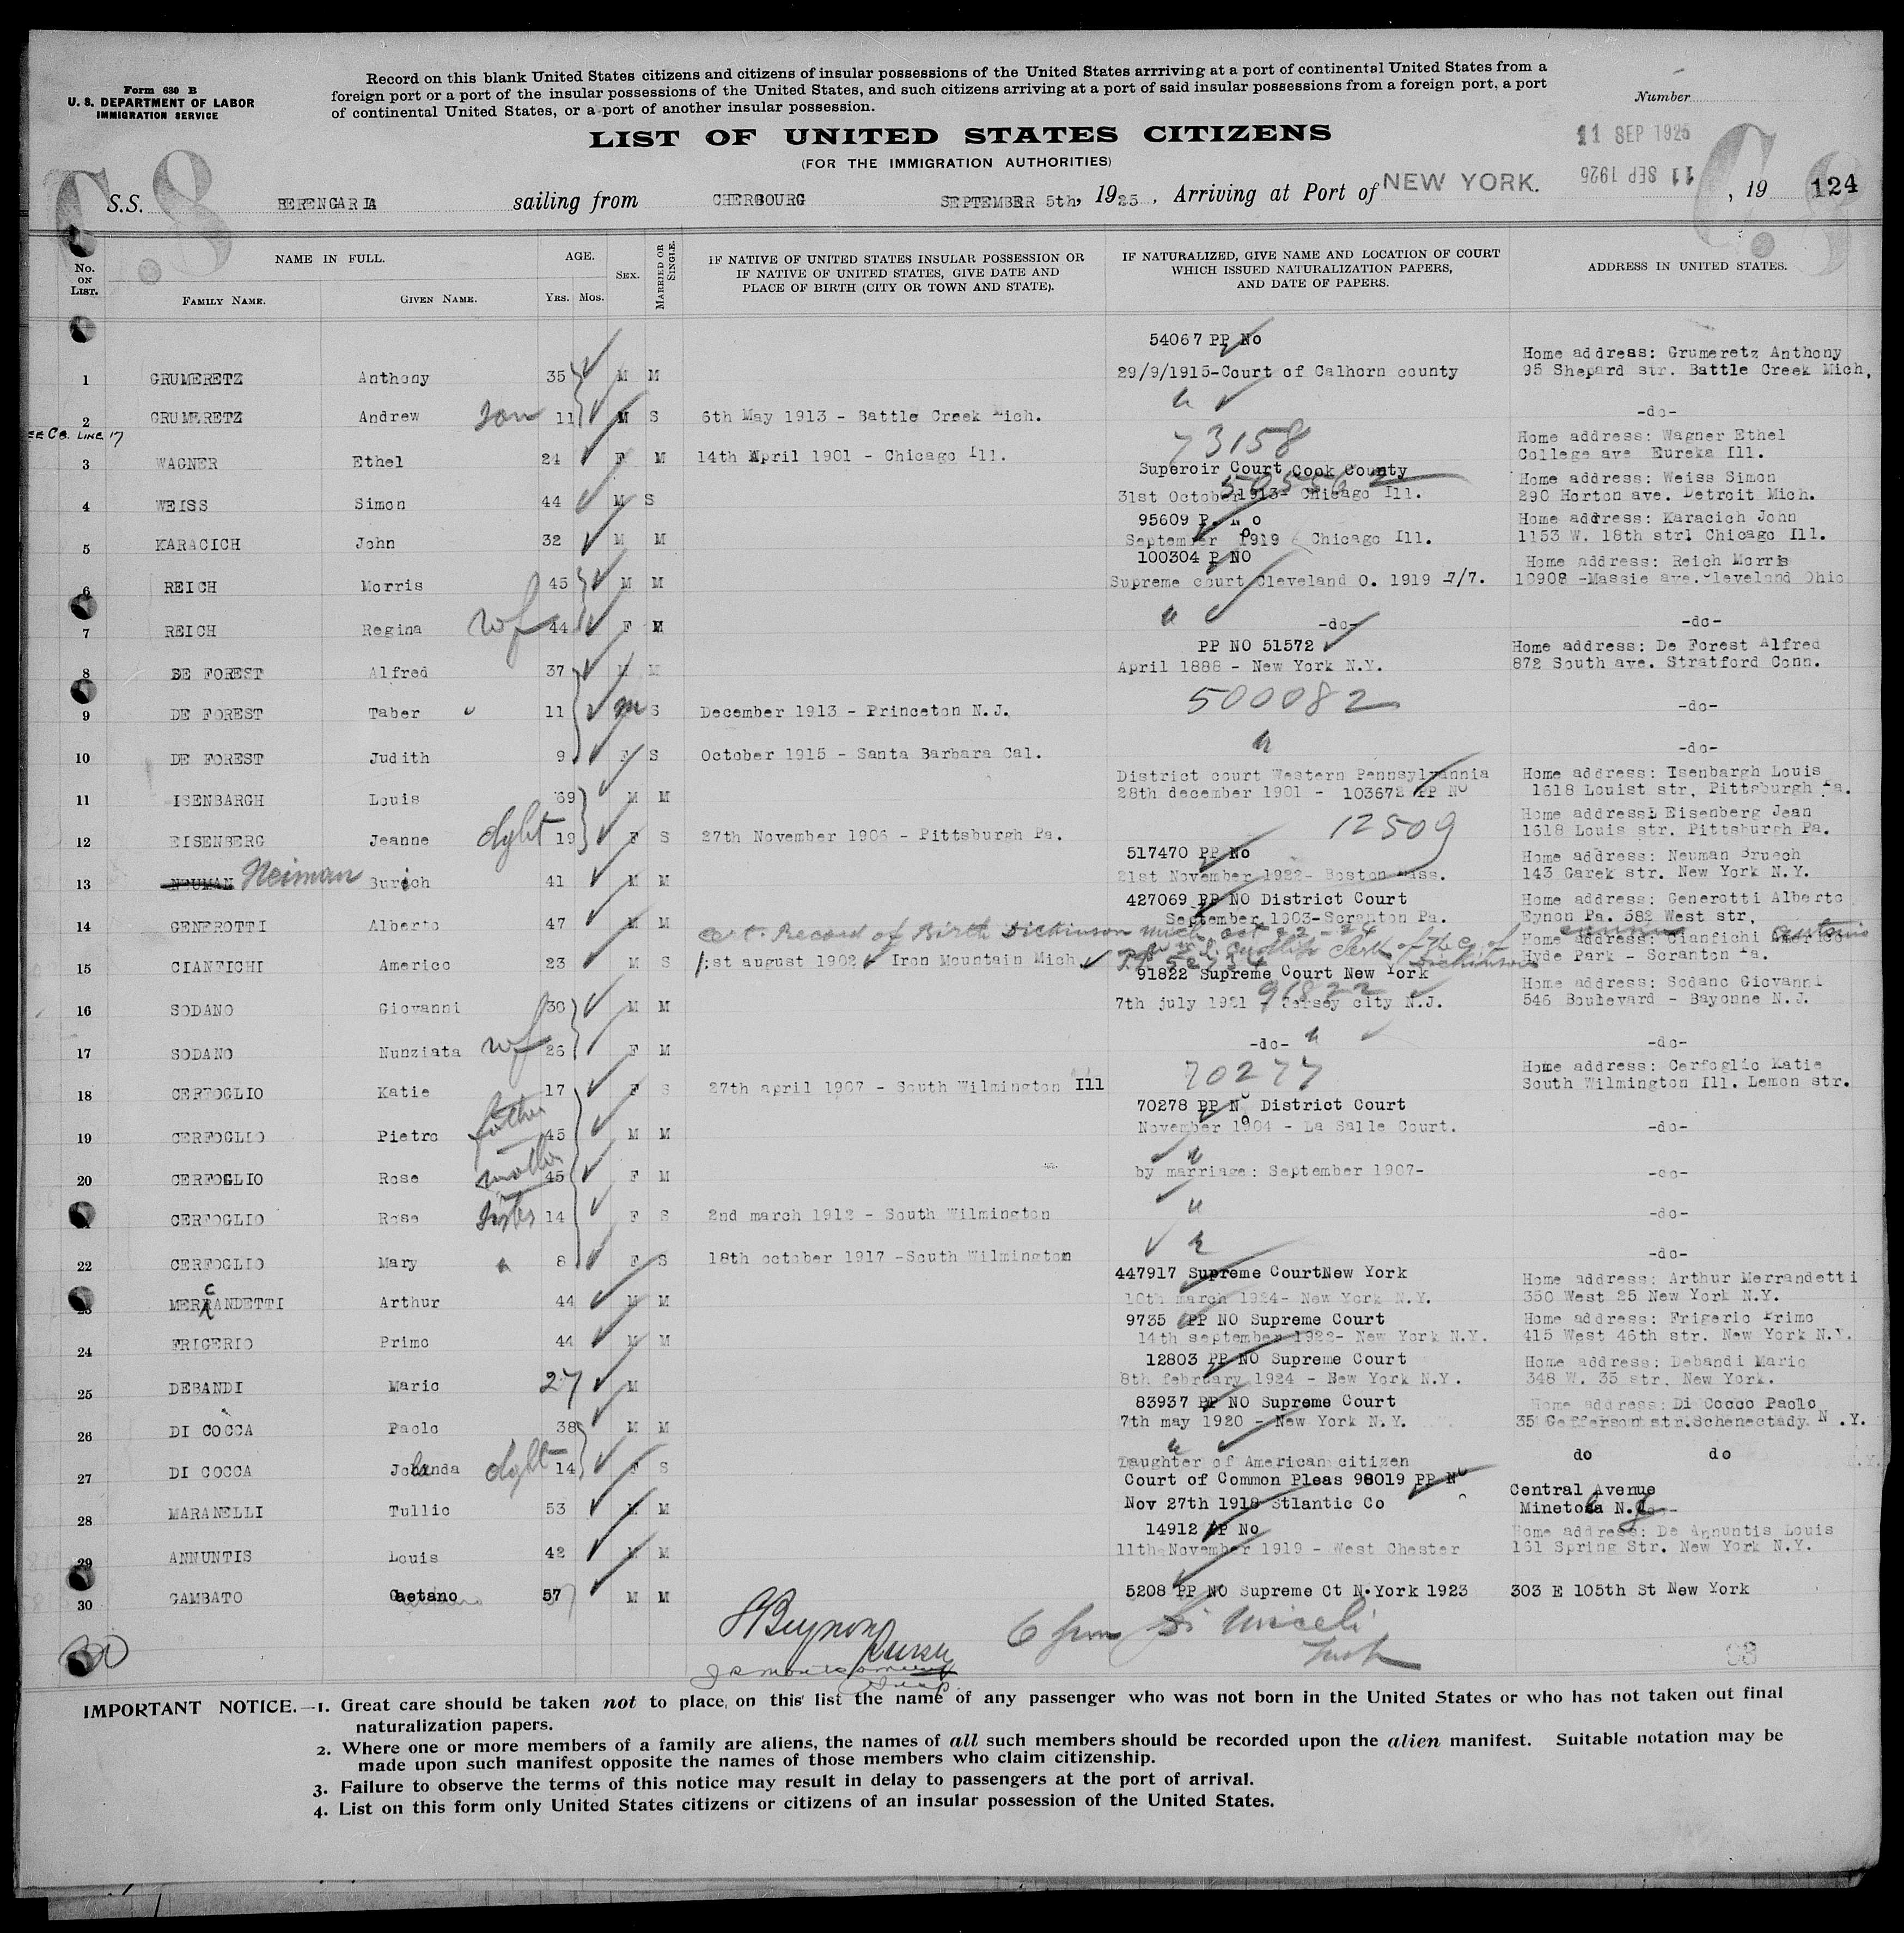 Form 630 B
U. S. DEPARTMENT OF LABOR
IMMIGRATION SERVICE
Record on this blank United States citizens and citizens of insular possessions of the United States arrriving at a port of continental United States from a
foreign port or a port of the insular possessions of the United States, and such citizens arriving at a port of said insular possessions from a foreign port, a port
of continental United States, or a port of another insular possession.
Number
LIST OF UNITED STATES CITIZENS
(FOR THE IMMIGRATION AUTHORITIES)
11 SEP 1925
11 SEP 1925
C. 8
C. 8
S.S. BERENGARIA sailing from CHERBOURG SEPTEMBER 5th, 1925, Arriving at Port of NEW YORK. , 19 124
No. ON LIST.
NAME IN FULL.
FAMILY NAME. GIVEN NAME.
AGE.
YRS. MOS.
SEX.
MARRIED OR SINGLE.
IF NATIVE OF UNITED STATES INSULAR POSSESSION OR
IF NATIVE OF UNITED STATES, GIVE DATE AND
PLACE OF BIRTH (CITY OR TOWN AND STATE).
IF NATURALIZED, GIVE NAME AND LOCATION OF COURT
WHICH ISSUED NATURALIZATION PAPERS,
AND DATE OF PAPERS.
ADDRESS IN UNITED STATES.
54067 PP No
Home address: Grumeretz Anthony
1 GRUMERETZ Anthony 35 M M 29/9/1915-Court of Calhorn county 95 Shepard str. Battle Creek Mich,
2 GRUMERETZ Andrew son 11 M S 6th May 1913 - Battle Creek Mich. " -do-
LINE 17
73158 Home address: Wagner Ethel
3 WAGNER Ethel 24 F M 14th April 1901 - Chicago Ill. College ave Eureka Ill.
Superoir Court Cook County Home address: Weiss Simon
4 WEISS Simon 44 M S 31st October 1913- Chicago Ill. 290 Horton ave. Detroit Mich.
95609 P. No Home address: Karacich John
5 KARACICH John 32 M M September 1919 Chicago Ill. 1153 W. 18th strl Chicago Ill.
100304 P NO Home address: Reich Morris
6 REICH Morris 45 M M Supreme court Cleveland O. 1919 -7/7. 10908 -Massie ave. Cleveland Ohio
7 REICH Regina wf 44 F M " -do- -do-
PP NO 51572 Home address: De Forest Alfred
8 DE FOREST Alfred 37 M M April 1888 - New York N.Y. 872 South ave. Stratford Conn.
9 DE FOREST Taber 11 m S December 1913 - Princeton N.J. 500082 -do-
10 DE FOREST Judith 9 F S October 1915 - Santa Barbara Cal. " -do-
District court Western Pennsylvannia Home address: Isenbargh Louis
11 ISENBARGH Louis 69 M M 28th december 1901 - 103672 PP No 1618 Louist str, Pittsburgh Pa.
12509 Home address: Eisenberg Jean
12 EISENBERG Jeanne dght 19 F S 27th November 1906 - Pittsburgh Pa. 1618 Louis str. Pittsburgh Pa.
517470 PP No Home address: Neuman Bruech
13 NEUMAN Neiman Burich 41 M M 21st November 1922- Boston Mass. 143 Garek str. New York N.Y.
427069 PP NO District Court Home address: Generotti Alberto
14 GENEROTTI Alberto 47 M M September 1903-Scranton Pa. Eynon Pa. 582 West str,
Cert. Record of Birth Dickinson Mich Oct 22-24
Home address: Cianfichi Americo Antonio
15 CIANFICHI Americo 23 M S 1st august 1902 Iron Mountain Mich. Hyde Park - Scranton Pa.
91822 Supreme Court New York Home address: Sodano Giovanni
91822
16 SODANO Giovanni 30 M M 7th july 1921 - Jersey city N.J. 546 Boulevard - Bayonne N.J.
17 SODANO Nunziata wf 26 F M -do- " -do-
70277 Home address: Cerfoglio Katie
18 CERFOGLIO Katie 17 F S 27th april 1907 - South Wilmington Ill South Wilmington Ill. Lemon str.
70278 PP No District Court
19 CERFOGLIO Pietro father 45 M M November 1904 - La Salle Court. -do-
20 CERFOGLIO Rose mother 45 F M by marriage: September 1907- " -do-
CERFOGLIO Rose sister 14 F S 2nd march 1912 - South Wilmington " -do-
22 CERFOGLIO Mary " 8 F S 18th october 1917 -South Wilmington " -do-
447917 Supreme CourtNew York Home address: Arthur Merrandetti
23 MERRANDETTI C Arthur 44 M M 10th march 1924- New York N.Y. 350 West 25 New York N.Y.
9735 PP NO Supreme Court Home address: Frigerio Primo
24 FRIGERIO Primo 44 M M 14th september 1922- New York N.Y. 415 West 46th str. New York N.Y.
12803 PP NO Supreme Court Home address: Debandi Mario
25 DEBANDI Mario 27 M 8th february 1924 - New York N.Y. 348 W. 35 str. New York.
83937 PP NO Supreme Court Home address: Di Cocco Paolo
26 DI COCCA Paolo 38 M M 7th may 1920 - New York N.Y. 35 Gefferson str.Schenectady N.Y.
27 DI COCCA Jolanda dght 14 F S " Daughter of American citizen do do
Court of Common Pleas 98019 PP No Central Avenue
28 MARANELLI Tullio 53 M M Nov 27th 1918 Stlantic Co Minetola N.J.
14912 PP No Home address: De Annuntis Louis
29 ANNUNTIS Louis 42 M M 11th November 1919 - West Chester 161 Spring Str. New York N.Y.
30 GAMBATO Gaetano 57 M M 5208 PP NO Supreme Ct N.York 1923 303 E 105th St New York
30
93
IMPORTANT NOTICE.—1. Great care should be taken not to place on this list the name of any passenger who was not born in the United States or who has not taken out final
naturalization papers.
2. Where one or more members of a family are aliens, the names of all such members should be recorded upon the alien manifest. Suitable notation may be
made upon such manifest opposite the names of those members who claim citizenship.
3. Failure to observe the terms of this notice may result in delay to passengers at the port of arrival.
4. List on this form only United States citizens or citizens of an insular possession of the United States.